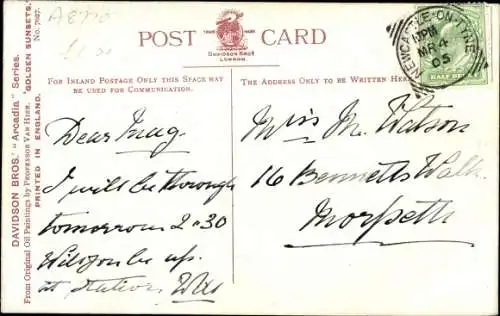 A8770
£1.50
POST CARD
TRADE MARK
DAVIDSON BROS.
LONDON.
FOR INLAND POSTAGE ONLY THIS SPACE MAY
BE USED FOR COMMUNICATION.
THE ADDRESS ONLY TO BE WRITTEN HERE
NEWCASTLE-ON-TYNE
MR 4
05
HALF PE
DAVIDSON BROS.' "Arcadia" Series.
From Original Oil Paintings by PROFESSOR VAN HIER. "GOLDEN SUNSETS."
PRINTED IN ENGLAND. No. 7027.
Dear Mag.
I will be through
tomorrow 2-30
Will you be up.
at station Was
Miss M. Watson
16 Bennetts Walk
Morpeth